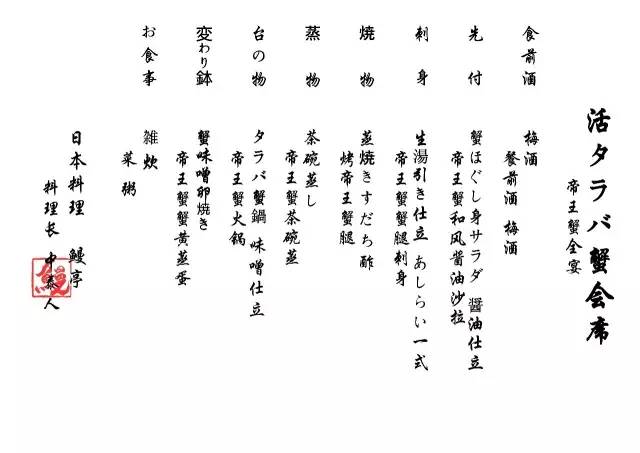 活タラバ蟹会席
帝王蟹全宴
食前酒
梅酒
餐前酒 梅酒
先付
蟹ほぐし身サラダ 醤油仕立
帝王蟹和风酱油沙拉
刺身
生湯引き仕立 あしらい一式
帝王蟹蟹腿刺身
焼物
蒸焼きすだち酢
烤帝王蟹腿
蒸物
茶碗蒸し
帝王蟹茶碗蒸
台の物
タラバ蟹鍋 味噌仕立
帝王蟹火锅
変わり鉢
蟹味噌卵焼き
帝王蟹蟹黄蒸蛋
お食事
雑炊
菜粥
日本料理 鰻亭
料理长 中泰人
鰻